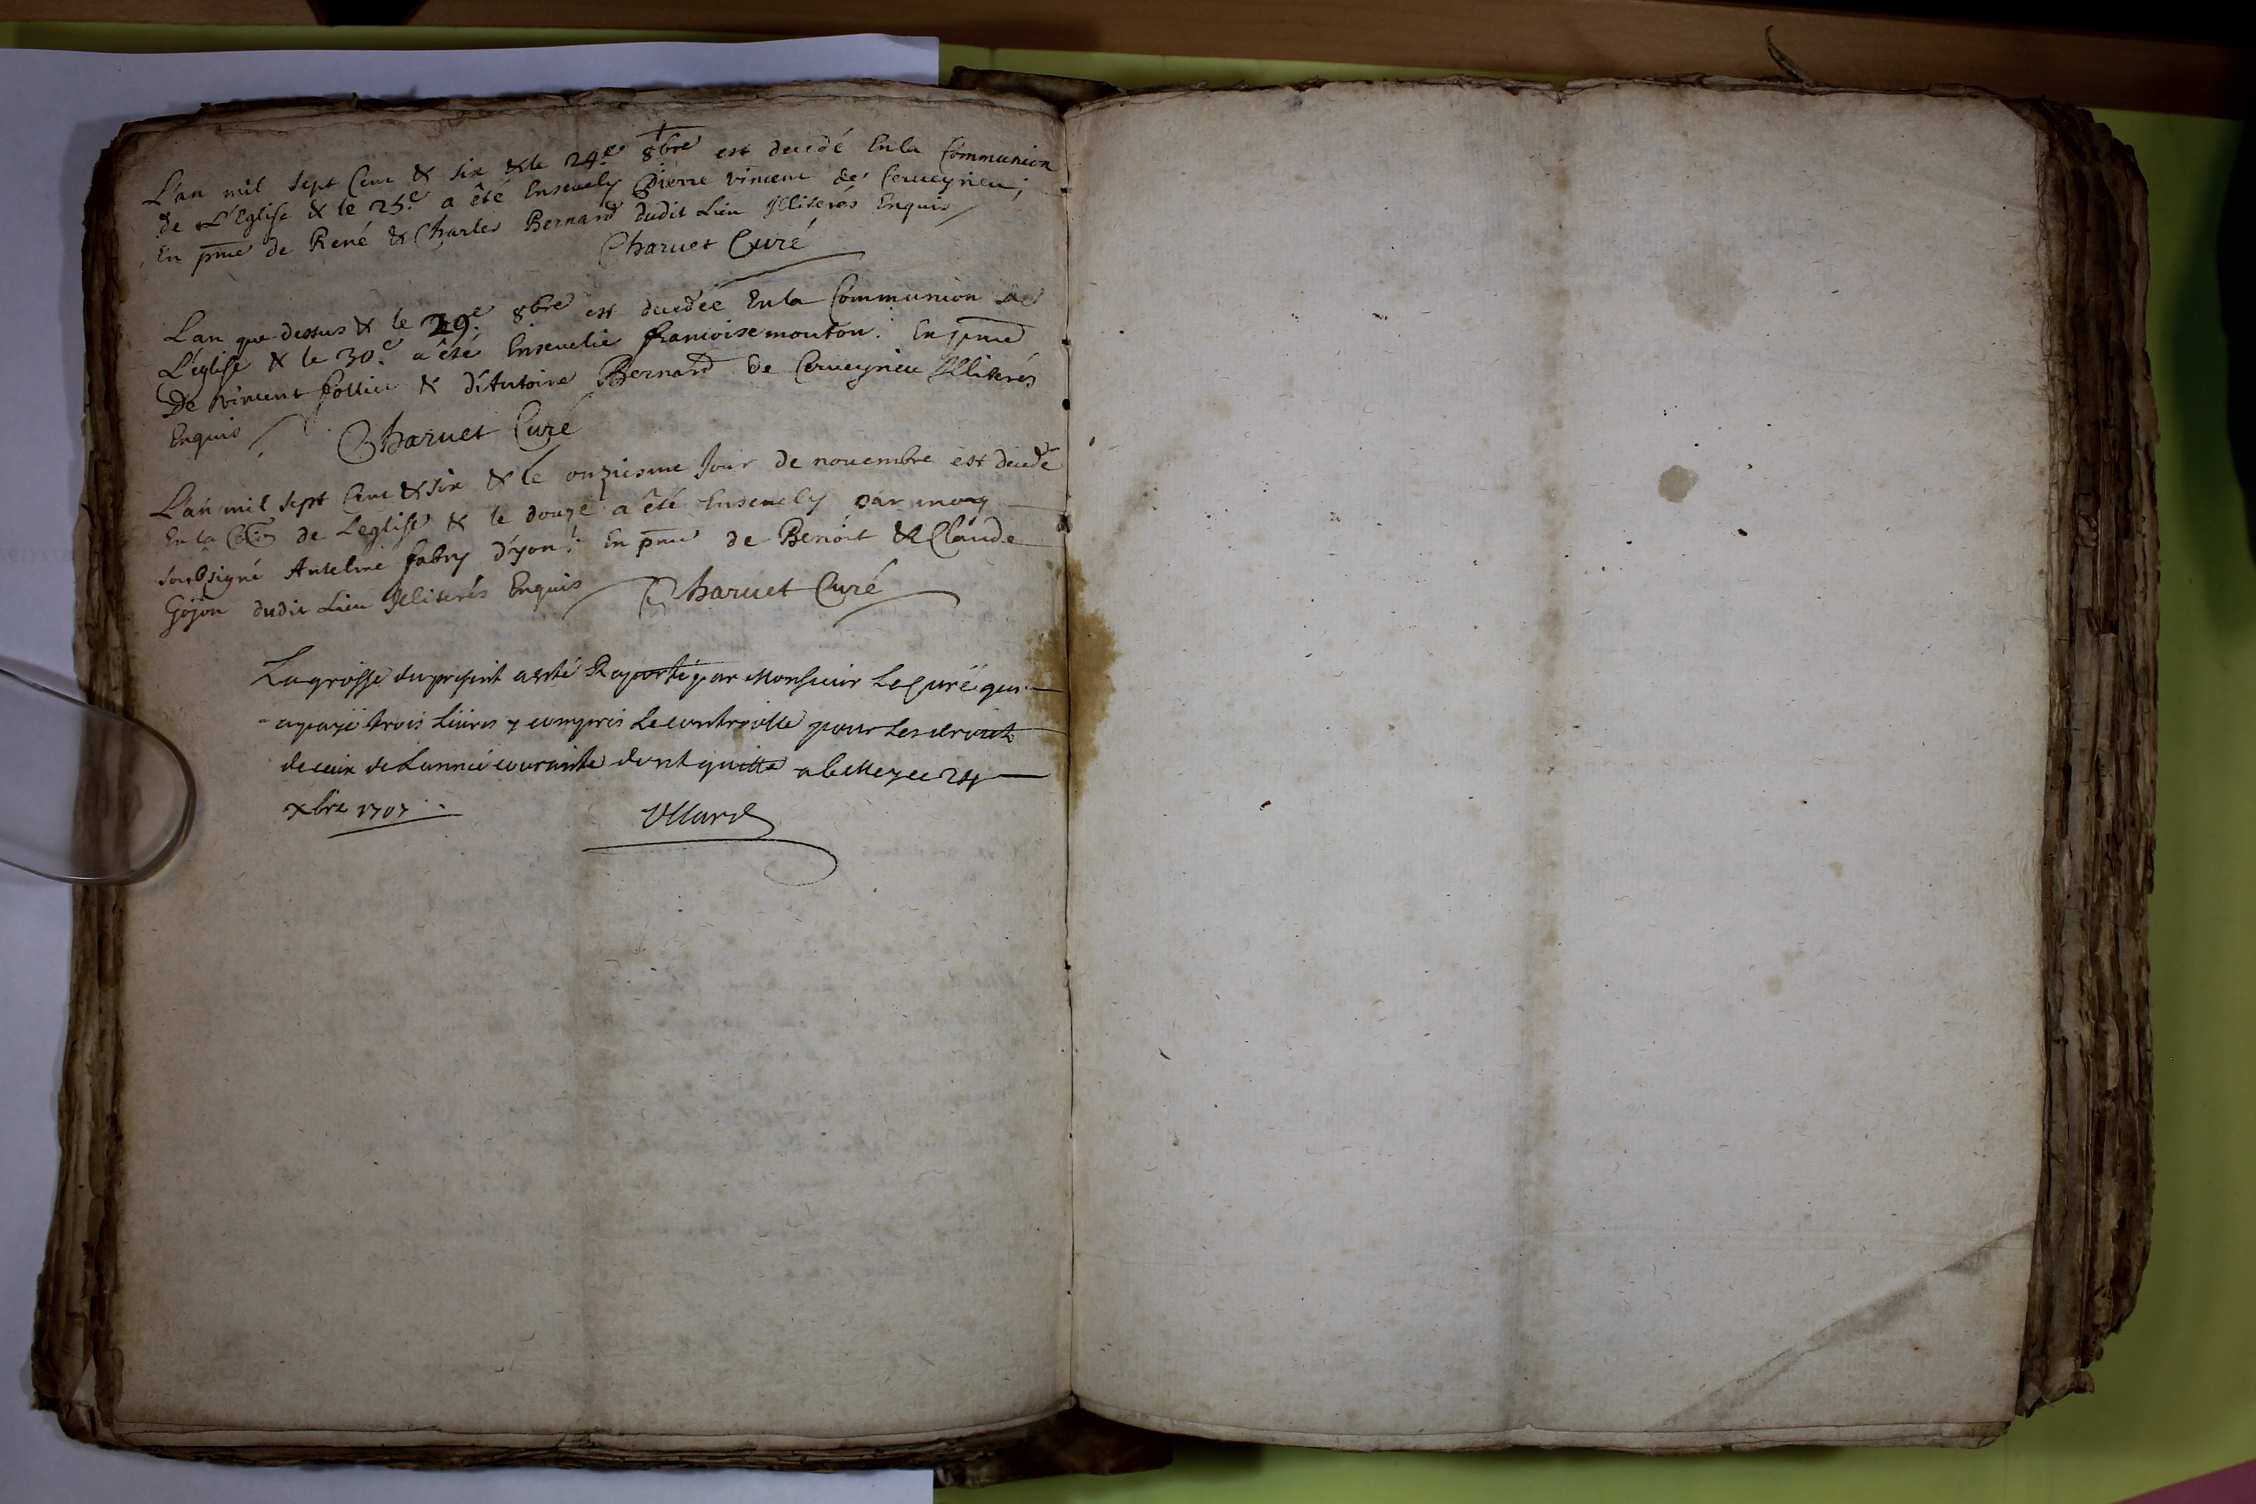 L'an mil sept Cent & six & le 24.e 8bre est decedé En la Communion
de L'Eglise & le 25.e a été Ensevely Pierre vincent de Cerveyrieu;
En pnce de René & Charles Bernard dudit Lieu Illiterés Enquis
Charvet Curé
L'an que dessus & le 29.e 8bre est decedée En la Communion de
L'église & le 30.e a été Ensevelie francoise mouton. En pnce
De vincent follier & d'Antoine Bernard de Cerveyrieu Illiterés
Enquis
Charvet Curé
L'an mil sept Cent & six & le onziesme Jour de novembre est decedé
En la de L'eglise & le douze a été Ensevely par moy
soubsigné Antelme fabry d'yon. En pnce de Benoit & Claude
Gojon dudit Lieu Illiterés Enquis Charvet Curé
La grosse du present a esté Raporté par Monsieur Le Curé qui
a payé trois Livres y compris Le controolle pour Les droits
de ceux de L'année courante dont quitte a belley ce 24
xbre 1707